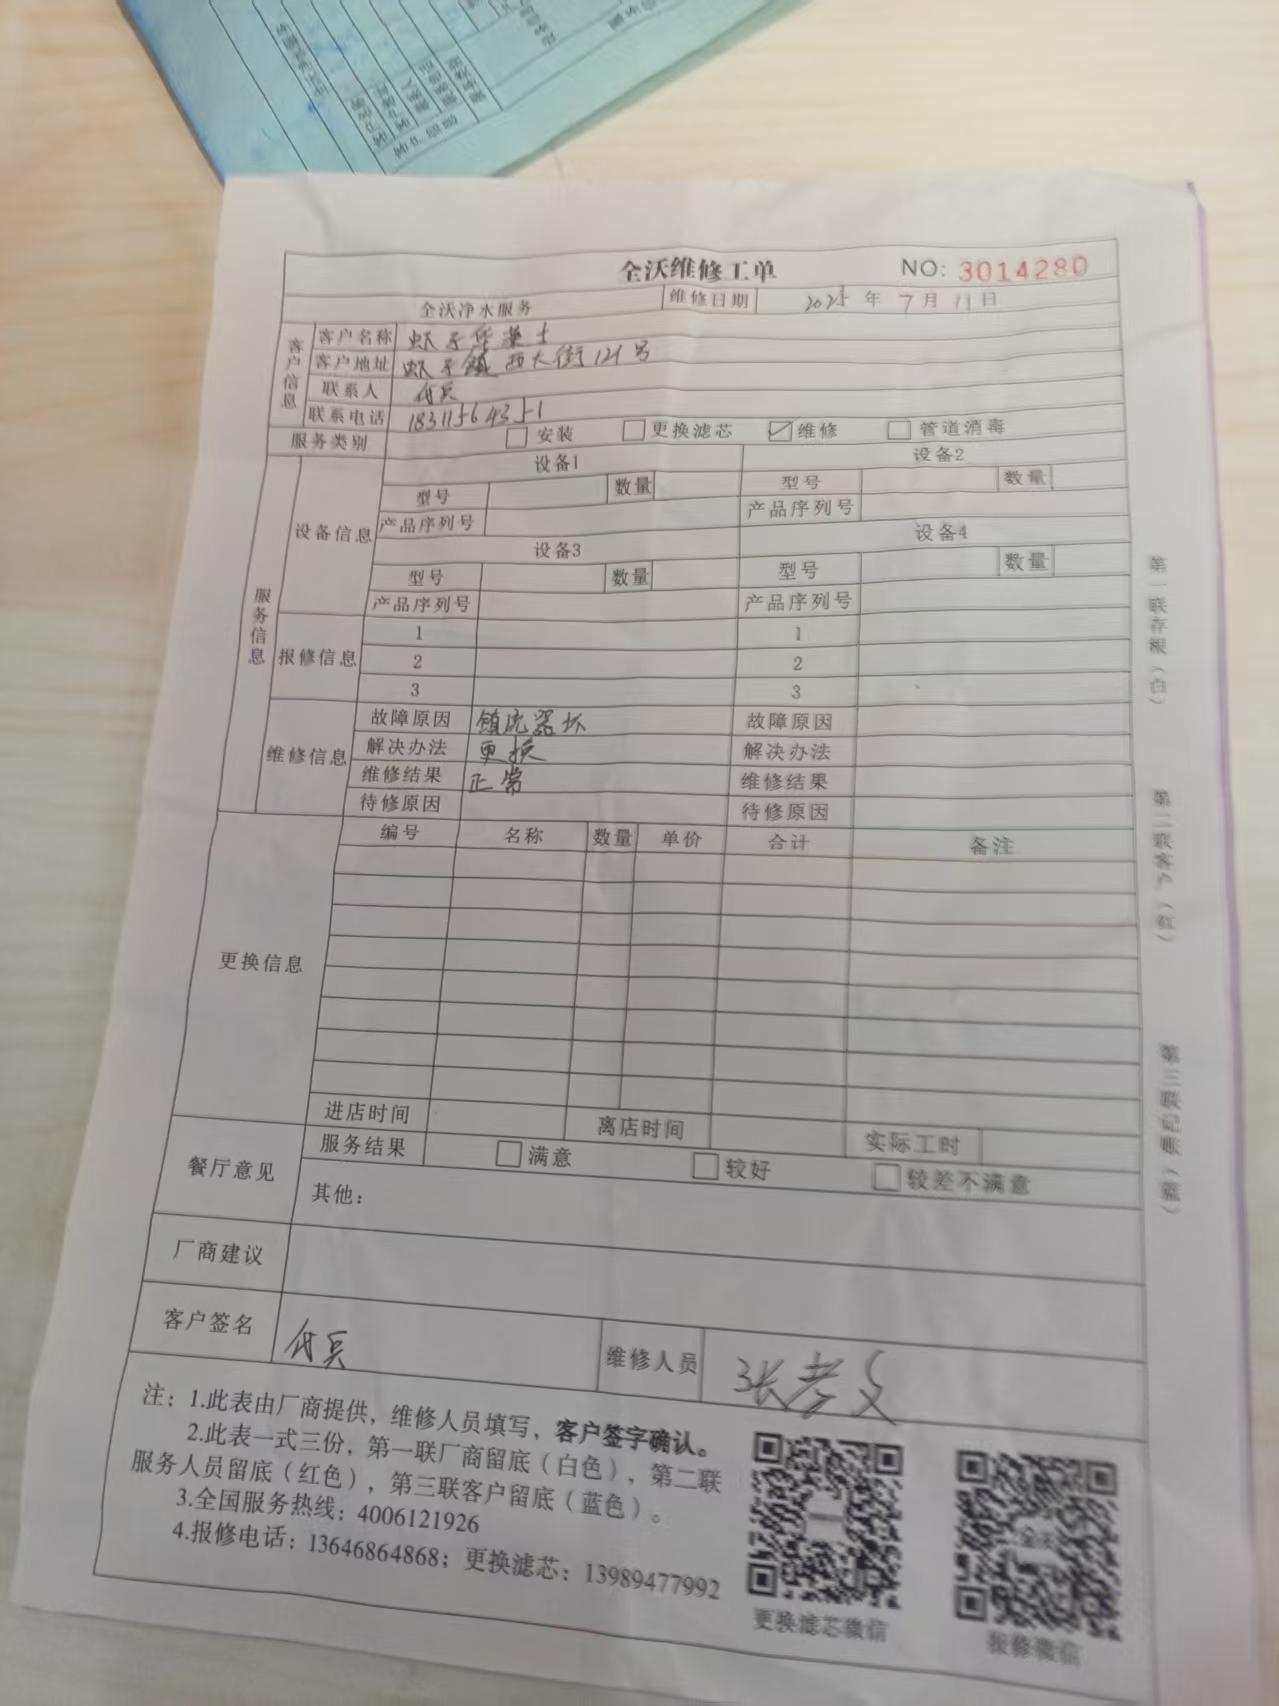 全沃维修工单 NO: 3014280
全沃净水服务 维修日期 2025 年 7 月 11 日
客户信息
客户名称 虾子华莱士
客户地址 虾子镇西大街121号
联系人 付兵
联系电话
服务类别 安装 更换滤芯 维修 管道消毒
服务信息
设备信息
设备1 设备2
型号 数量 型号 数量
产品序列号 产品序列号
设备3 设备4
型号 数量 型号 数量
产品序列号 产品序列号
报修信息
1 1
2 2
3 3
维修信息
故障原因 镇流器坏 故障原因
解决办法 更换 解决办法
维修结果 正常 维修结果
待修原因 待修原因
更换信息
编号 名称 数量 单价 合计 备注
进店时间 离店时间 实际工时
餐厅意见
服务结果 满意 较好 较差不满意
其他：
厂商建议
客户签名 付兵 维修人员
注：1.此表由厂商提供，维修人员填写，客户签字确认。
2.此表一式三份，第一联厂商留底（白色），第二联
服务人员留底（红色），第三联客户留底（蓝色）。
3.全国服务热线：4006121926
4.报修电话：13646864868；更换滤芯：13989477992
更换滤芯微信
报修微信
第一联存根（白）
第二联客户（红）
第三联记账（蓝）